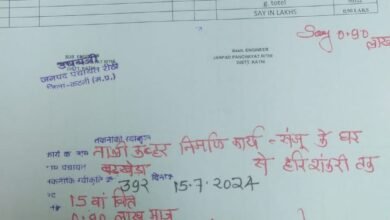 g. total
SAY IN LAKHS
Say 0.90
लाख
उपयंत्री
जनपद पंचायत रीठी
जिला-कटनी (म.प्र.)
Asstt. ENGINEER
JANPAD PANCHAYAT RITHI
DISTT. KATNI
तकनीकी स्वीकृति
कार्य का नाम नाली कव्हर निर्माण कार्य - संजू के घर
से हरिशंकरी तक
ग्राम पंचायत बरखेड़ा
तकनीकी स्वीकृति क्र. 392 दिनांक 15.7.2024
15 वां वित्त
0.90 लाख मात्र